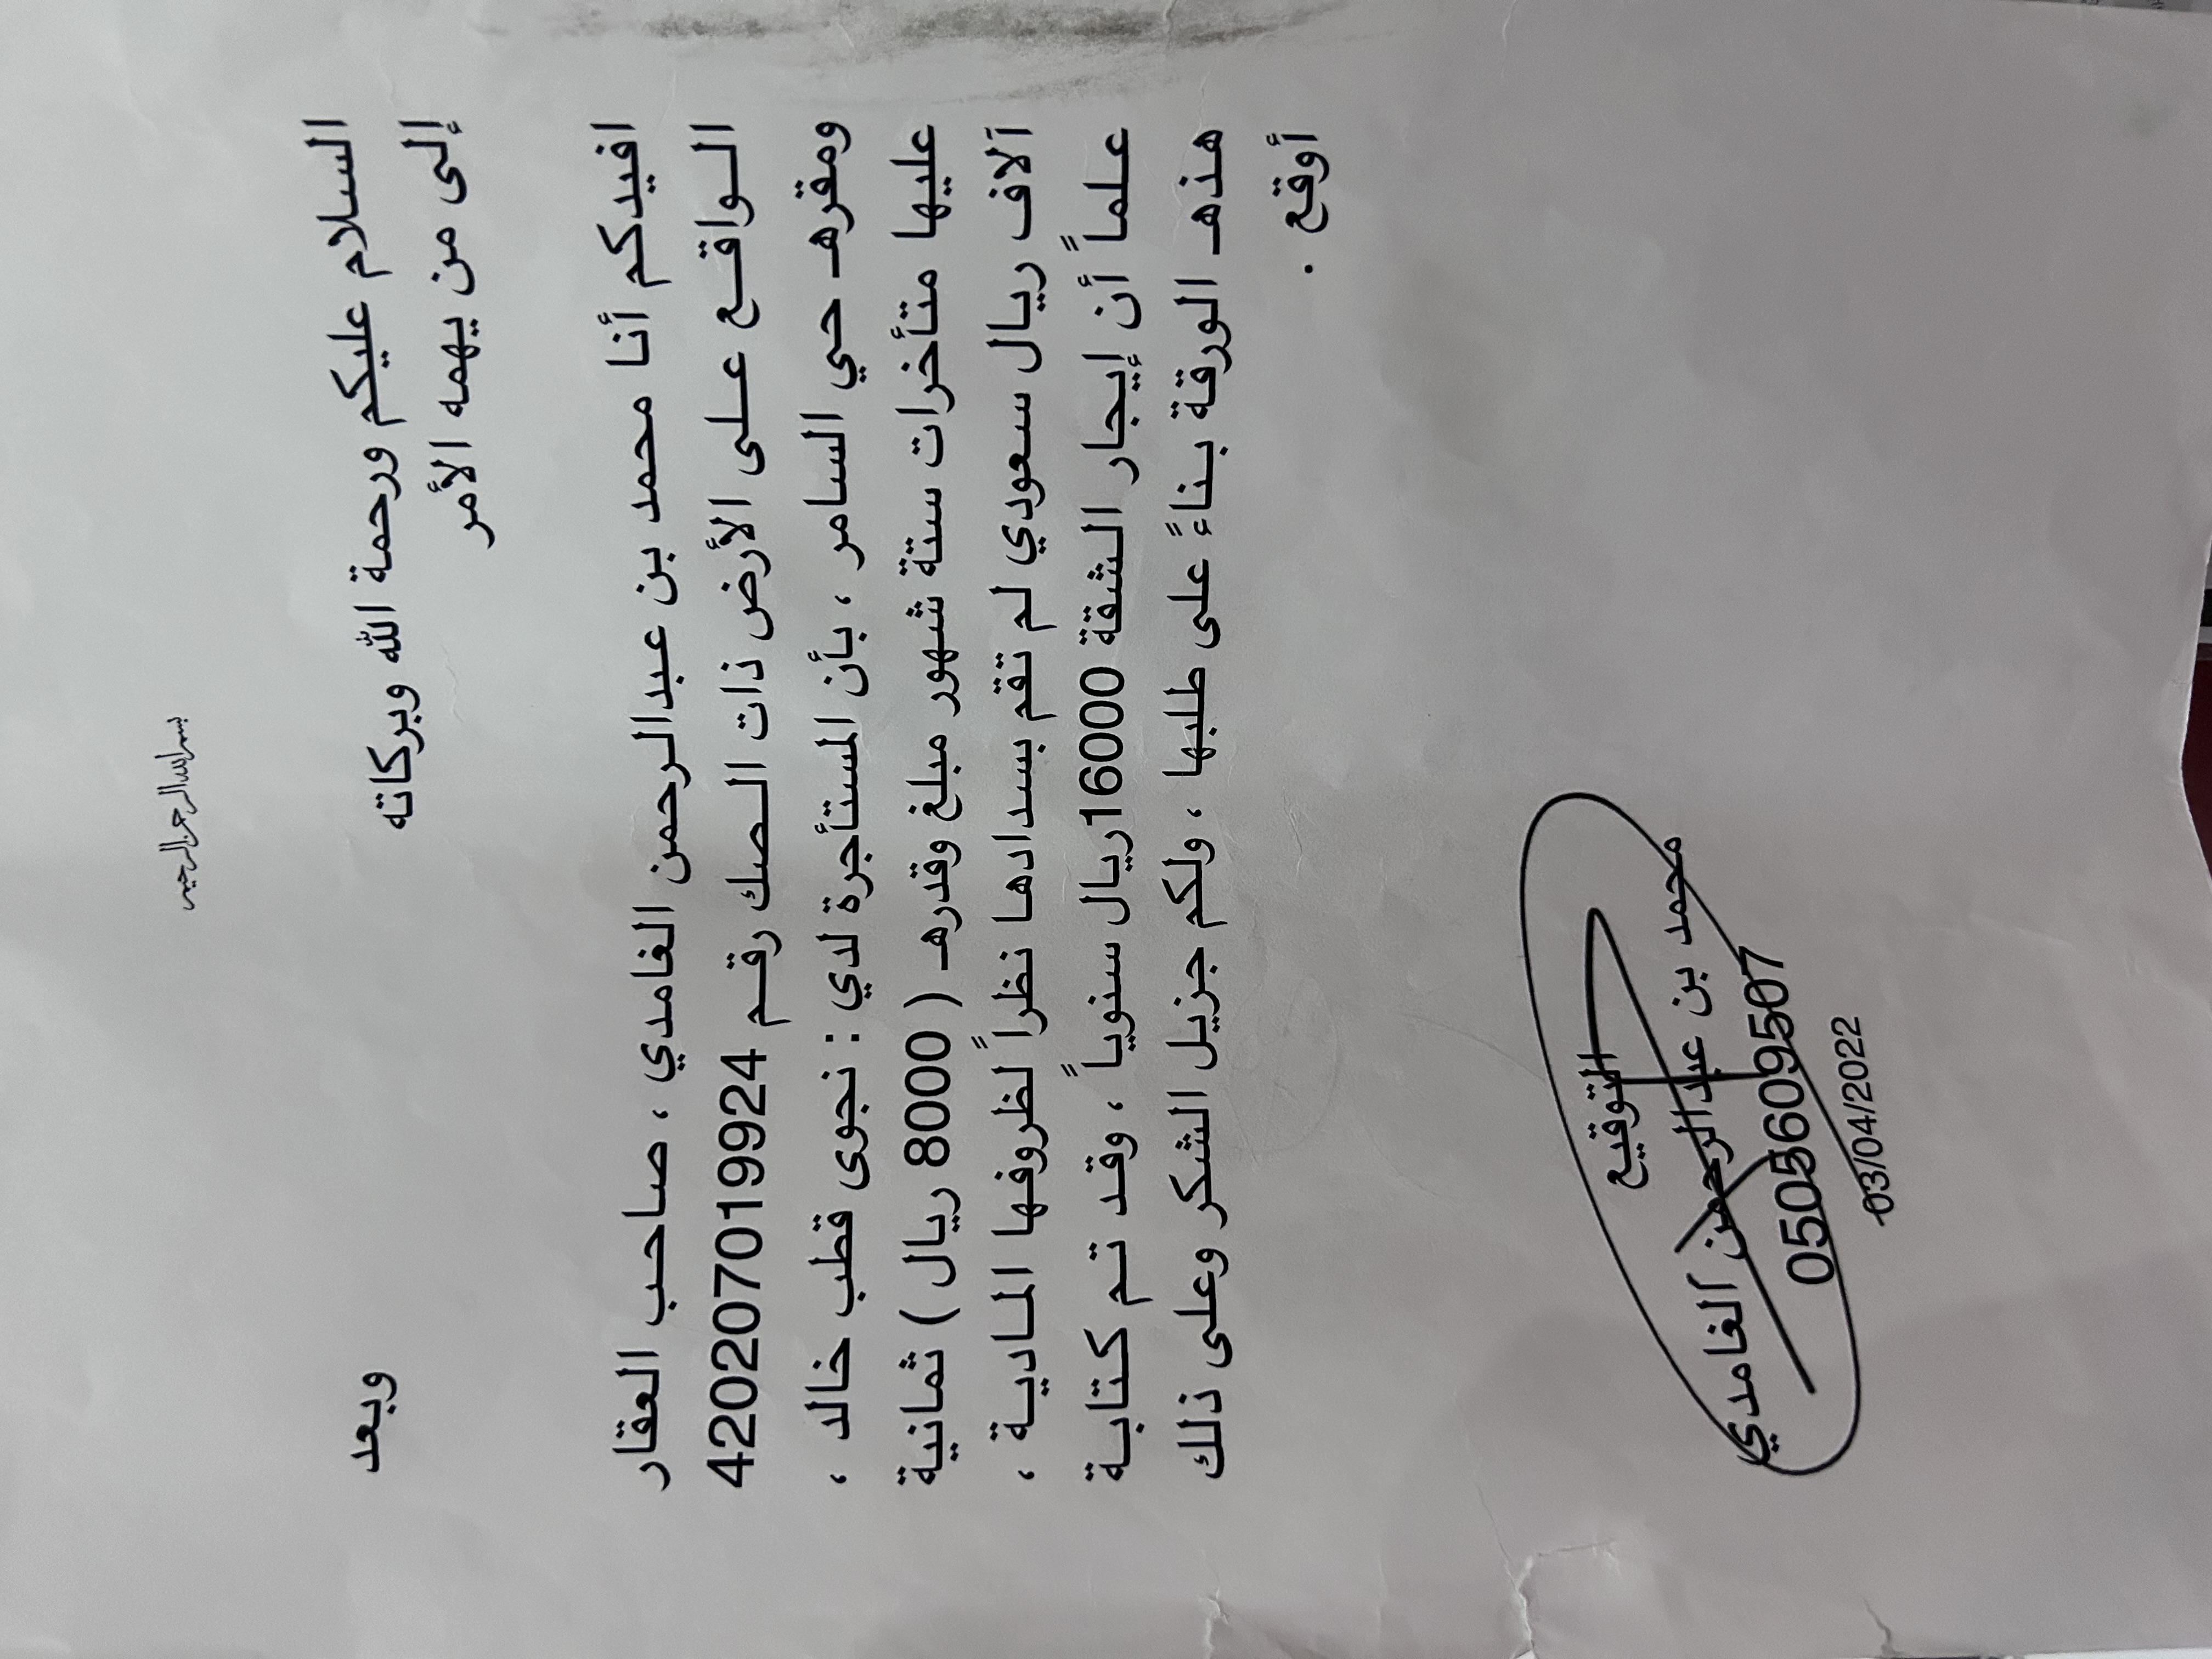 بسم الله الرحمن الرحيم
السلام عليكم ورحمة الله وبركاته وبعد
إلى من يهمه الأمر
افيدكم أنا محمد بن عبدالرحمن الغامدي ، صاحب العقار
الواقع على الأرض ذات الصك رقم 420207019924
ومقره حي السامر ، بأن المستأجرة لدي : نجوى قطب خالد ،
عليها متأخرات ستة شهور مبلغ وقدره ( 8000 ريال ) ثمانية
آلاف ريال سعودي لم تقم بسدادها نظراً لظروفها المادية ،
علماً أن إيجار الشقة 16000ريال سنوياً ، وقد تم كتابة
هذه الورقة بناءً على طلبها ، ولكم جزيل الشكر وعلى ذلك
أوقع .
التوقيع
محمد بن عبدالرحمن الغامدي
0505609507
03/04/2022